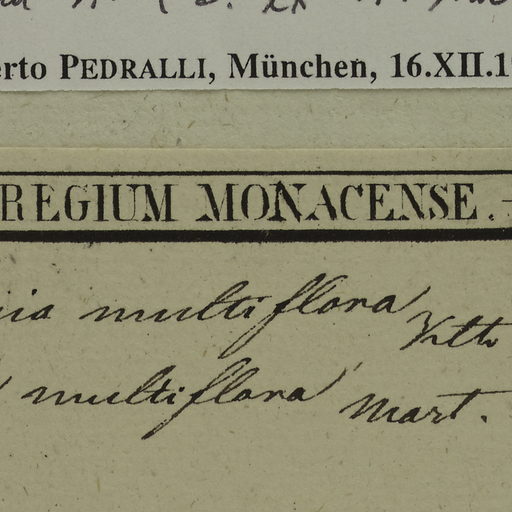 erto PEDRALLI, München, 16.XII.1
REGIUM MONACENSE.-
nia multiflora Vitt
multiflora Mart.